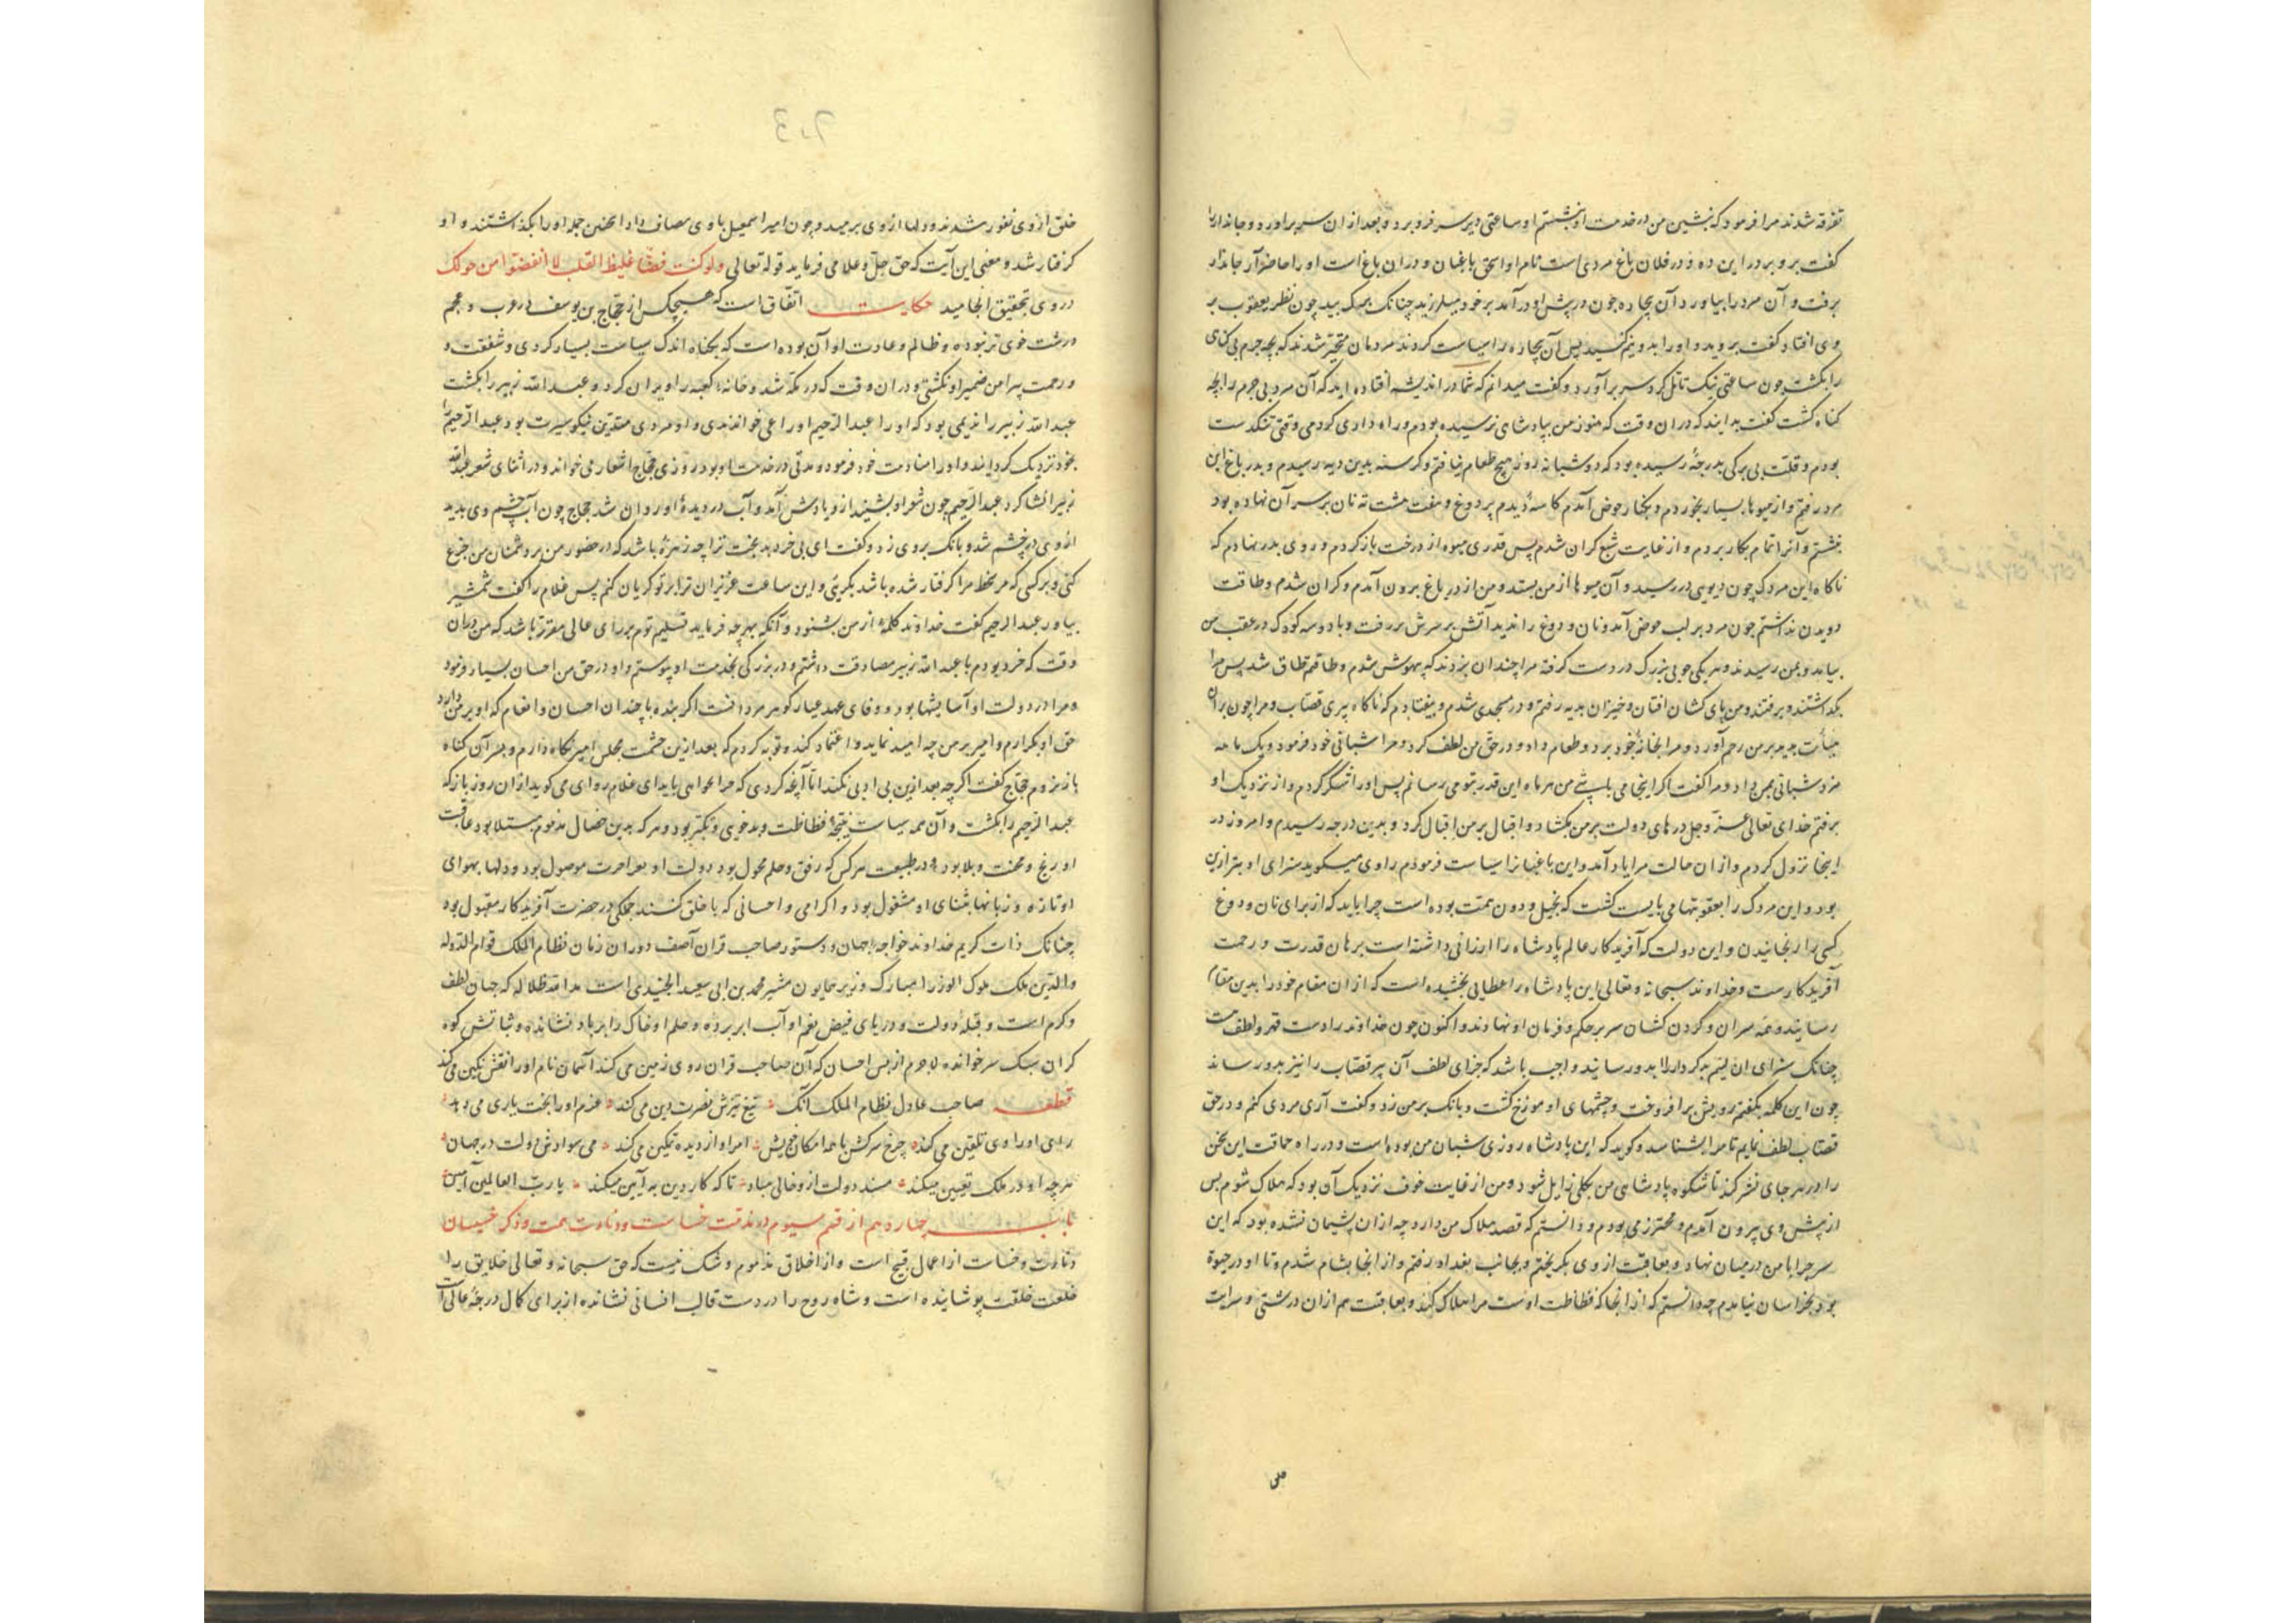 تفرقه شدند مرا فرمود که بنشین من در خدمت او بنشستم او ساعتی دیر سر فرو برد و بعد از ان سر براورد و جاندار را
کفت برو بر در این ده و در فلان باغ مردی است نام او اسحق باغبان و در ان باغ است او را حاضر آر جاندار
برفت و آن مرد را بیاورد آن بیچاره چون در پیش او در آمد بر خود میلرزید چنانک برک بید چون نظر یعقوب بر
وی افتاد کفت بروید و او را بدو نیم کنید پس آن بیچاره را سیاست کردند مردمان متحیر شدند که بچه جرم بی کناهی
را بکشت چون ساعتی نیک تامل کرد سر برآورد و کفت میدانم که شما در اندیشه افتاده اید که آن مرد بی جرم را بچه
کناه کشت کفت بدانید که در ان وقت که هنوز من بپادشاهی نرسیده بودم و راه داری کردمی وقتی تنکدست
بودم و قلت بی برکی بدرجه رسیده بود که دو شبانه روز هیچ طعام نیافتم و کرسنه بدین دیه رسیدم و بدر باغ این
مرد رفتم و از میوها بسیار بخوردم و بکنار حوض آمدم کاسه دیدم پر دوغ و هفت هشت ته نان بر سر آن نهاده بود
بنشستم و آنرا تمام بکار بردم و از غایت شبع کران شدم پس قدری میوه از درخت باز کردم و روی بدر نهادم که
ناکاه این مردک چون دیوی در رسید و آن میوها از من بستد و من از در باغ برون آمدم و کران شدم و طاقت
دویدن نداشتم چون مرد بر لب حوض آمد و نان و دوغ را ندید آتش بر سرش بر رفت و با دو سه کودک در عقب من
بیامد و بمن رسیدند و هر یکی چوبی بزرک در دست کرفته مرا چندان بزدند که بیهوش شدم و طاقتم طاق شد پس مرا
بکذاشتند و برفتند و من پای کشان افتان و خیزان بدیه رفتم و در مسجدی شدم و بیفتادم که ناکاه پیری قصاب و مرا چون بران
هیأت بدید بر من رحم آورد و مرا بخانه خود برد و طعام داد و در حق من لطف کرد و مرا شبانی خود فرمود و یک ماهه
مزد شبانی بمن داد و مرا کفت اکر اینجا می باشی من هر ماه این قدر بتو می رسانم پس او را شکر کردم و از نزدیک او
برفتم خدای تعالی عز و جل درهای دولت بر من بکشاد و اقبال بر من اقبال کرد و بدین درجه رسیدم و امروز در
اینجا نزول کردم و از ان حالت مرا یاد آمد و این باغبانرا سیاست فرمودم راوی میکوید سزای او بتر ازین
بود و این مردک را بعقوبتها می بایست کشت که بخیل و دون همت بوده است چرا باید که از برای نان و دوغ
کسی را رنجانیدن و این دولت که آفریدکار عالم پادشاه را ارزانی داشته است برهان قدرت و رحمت
آفریدکارست و خداوند سبحانه و تعالی این پادشاه را عطایی بخشیده است که از ان مقام خود را بدین مقام
رسانیده و همه سران و کردن کشان سر بر حکم و فرمان او نهادند و اکنون چون خداوند را دست قهر و لطف هست
چنانک سزای ان لئیم بدکردار را بدو رسانید واجب باشد که جزای لطف آن پیر قصاب را نیز بدو رساند
چون این کلمه بکفتم رویش برافروخت و چشمهای او موزخ کشت و بانک بر من زد و کفت آری مردی کنم و در حق
قصاب لطف نمایم تا مرا بشناسد و کوید که این پادشاه روزی شبان من بوده است و در راه حماقت این سخن
را در هر جای نشر کند تا شکوه پادشاهی من بکلی زایل شود و من از غایت خوف نزدیک آن بود که هلاک شوم پس
از پیش وی بیرون آمدم و محترز می بودم و دانستم که قصد هلاک من دارد چه از ان پشیمان نشده بود که این
سر چرا با من در میان نهاد و بعاقبت از وی بکریختم و بجانب بغداد رفتم و از انجا بشام شدم و تا او در حیوة
بود بخراسان نیامدم چه دانستم که از انجا که فظاظت اوست مرا هلاک کند و بعاقبت هم از ان درشتی و سرایت
خلق از وی نفور شدند و دلها از وی برمید و چون امیر اسمعیل با وی مصاف داد انجمن جمله او را بکذاشتند و او
کرفتار شد و معنی این آیت که حق جل و علا می فرماید قوله تعالی ولو کنت فظا غلیظ القلب لا انفضوا من حولک
در وی تحقیق انجامید حکایت اتفاق است که هیچکس از حجاج بن یوسف در عرب و عجم
درشت خوی تر نبوده و ظالم و عادت او آن بوده است که بکناه اندک سیاست بسیار کردی و شفقت و
و رحمت پیرامن ضمیر او نکشتی و در ان وقت که در مکه شد و خانه کعبه را ویران کرد و عبد الله زبیر را بکشت
عبد الله زبیر را ندیمی بود که او را عبد الرحیم اوراعی خواندندی و او مردی متدین نیکو سیرت بود عبد الرحیم را
بخود نزدیک کردانید و او را منادمت خود فرمود و مدتی در خدمت او بود روزی حجاج اشعار می خواند و در اثنای شعر عبد الله
زبیر انشا کرد عبد الرحیم چون شعر او بشنید ازو یادش آمد و آب در دیده او روان شد حجاج چون آب چشم وی بدید
از وی در خشم شد و بانک بر وی زد و کفت ای بی خرد بدبخت ترا چه زهره باشد که در حضور من بر دشمنان من جزع
کنی و بر کسی که در سخط ما کرفتار شده باشد بکریی و این ساعت عزیزان ترا بر تو کریان کنم پس غلام را کفت شمشیر
بیاور عبد الرحیم کفت خداوند کلمه از من بشنود و آنکه بهر چه فرماید تسلیم توم بر رای عالی مقرر باشد که من در ان
وقت که خرد بودم با عبد الله زبیر مصادقت داشتم و در بزرکی بخدمت او پیوستم و او در حق من احسان بسیار فرمود
و مرا در دولت او آسایشها بود و وفای عهد عیار کوهر مرد افت اکر بنده با چندان احسان و انعام که او بر من دارد
حق او نکزارم و امیر بر من چه امید نماید و اعتماد کند و توبه کردم که بعد ازین حشمت مجلس امیر نکاه دارم و بسر آن کناه
باز نروم حجاج کفت اکر چه بعد ازین بی ادبی نکنند اما آنچه کردی که جزا عوامی باید ای غلام راوی می کوید از ان روز باز که
عبد الرحیم را بکشت و آن همه سیاست نتیجه فظاظت و بدخویی و تکبر بود و هر که بدین خصال مذموم مبتلا بود عاقبت
او رنج و محنت و بلا بود و در طبیعت هر کس که رفق و حلم مجبول بود دولت او بمراحرت موصول بود و دلها بهوای
او تازه و زبانها بثنای او مشغول بود و اکرامی و احسانی که با خلق کنند جملکی در حضرت آفریدکار مقبول بود
چنانک ذات کریم خداوند خواجه جهان و دستور صاحب قران آصف دوران زمان نظام الملک قوام الدوله
والدین ملک ملوک الوزرا مبارک وزیر همایون مشیر محمد بن ابی سعید الجنیدی است مد الله ظلاله که جهان لطف
و کرم است و قبله دولت و دریای فیض نعم او آب ابر برده و حلم او خاک را بر باد نشانده و ثباتش کوه
کران سبک سر خوانده لاجرم از بس احسان که آن صاحب قران روی زمین می کند آسمان نام او را نقش نکین می کند
قطعه صاحب عادل نظام الملک آنک تیغ تیزش نصرت دین می کند عزم او را بخت یاری می دهد
رای او را وی تلقین می کند چرخ سرکش با همه امکان خویش امر او از دیده تمکین می کند می سواد دولت در جهان
هر چه او در ملک تعیین میکند مسند دولت ازو خالی مباد تا که کار دین به آیین میکند یا رب العالمین آمین
باب چهاردهم از قسم سیوم در مذمت خساست و دناءت همت و ذکر خسیسان
دناءت و خساست از اعمال قبیح است و از اخلاق مذموم و شک نیست که حق سبحانه و تعالی خلایق را
خلعت خلقت پوشانیده است و شاه روح را در دست قالب انسانی نشانده از برای کمال درجه عالی آن